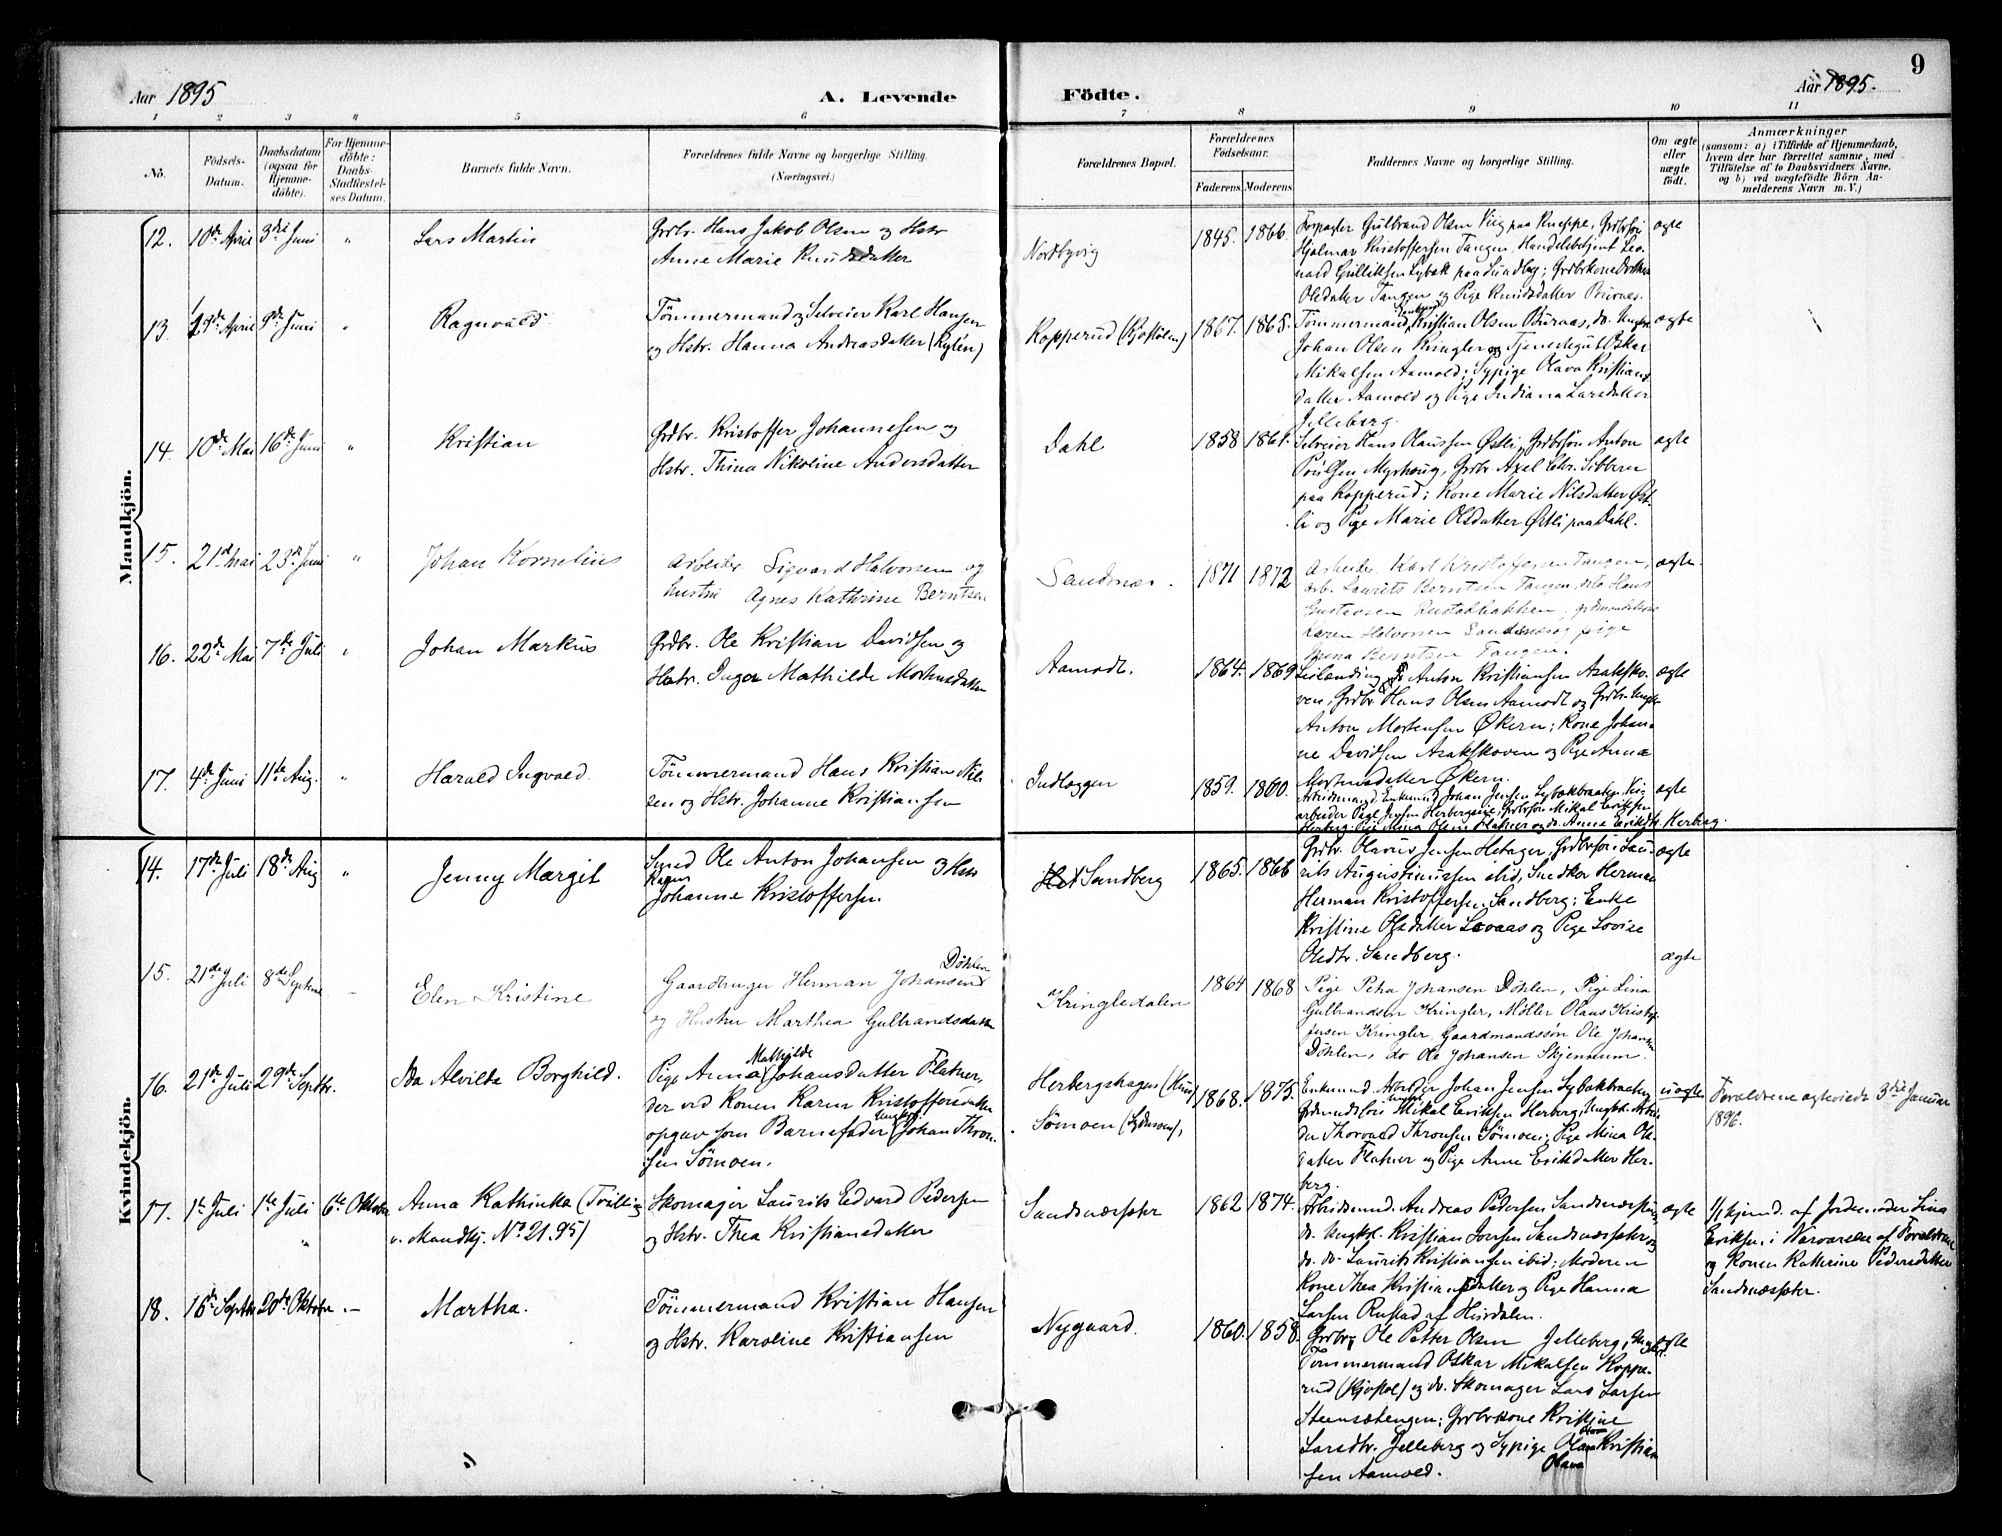 9
Aar 1895
A. Levende
Födte.
Aar 1895.
1 2 3 4 5 6 7 8 9 10 11
No.
Födsels-Datum.
Daabsdatum (ogsaa for Hjemme-döbte).
For Hjemme-döbte: Daabs-Stadfæstel-ses Datum.
Barnets fulde Navn.
Forældrenes fulde Navne og borgerlige Stilling.
(Næringsvei.)
Forældrenes Bopæl.
Forældrenes Födselsaar.
Faderens. Moderens.
Faddernes Navne og borgerlige Stilling.
Om ægte eller uægte födt.
Anmærkninger
(saasom: a) i Tilfælde af Hjemmedaab,
hvem der har forrettet samme, med
Tilföielse af to Daabsvidners Navne.
og b) ved uægtefödte Börn An-
melderens Navn m. V.)
Mandkjön.
12. 10de April 3die Juni " Lars Martin
Grdbr. Hans Jakob Olsen og Hstr
Anne Marie Knudsdatter
Nordbyvig
1845. 1866.
Forpagter Gulbrand Olsen Viig paa Kneppe, Grdbrsön
Hjalmar Kristoffersen Tangen, Handelsbetjent Leo-
nard Gulliksen Lybæk paa Sundby; Grdbrkone Dorthea
Olsdatter Tangen og Pige Knudsdatter Buraas.
ægte
13. 29de April 9de Juni " Ragnvald
Tömmermand og Selveier Karl Hansen
og Hstr. Hanna Andreasdatter (Rylén)
Kopperud (Kjöstölen)
1867. 1868.
Tömmermand Kristian Olsen Buraas, do. Ungkr.
Johan Olsen Kringler og Tjenestegut Oskar
Mikalsen Aamold; Sypige Olava Kristians-
datter Aamold og Pige Indiana Larsdatter
Jelleberg.
ægte
14. 10de Mai 16de Juni " Kristian
Grdbr. Kristoffer Johannesen og
Hstr. Thina Nikoline Andersdatter
Dahl
1858 1861.
Selveier Hans Olaussen Østli, Grdbrsön Anton
Poulsen Myrhaug, Grdbr. Axel Sibbern
paa Kopperud; Kone Marie Nilsdatter Øst-
li og Pige Marie Olsdatter Østli paa Dahl.
ægte
15. 21de Mai 23de Juni " Johan Kornelius
Arbeider Sigvard Halvorsen og
hustru Agnes Kathrine Berntsen
Sandsnæs.
1871 1872
Arbeider Karl Kristoffersen Tangen,
arb. Laurits Berntsen Tangen, do Hans
Gustavsen Rustadbakken, grdmandskone
Karen Halvorsen Sandsnæs og pige
Berntsen Tangen.
ægte.
16. 22de Mai 7de Juli " Johan Markus
Grdbr. Ole Kristian Davidsen og
Hstr. Inger Mathilde Mortensdatter
Aamodt.
1864. 1869
Anton Kristiansen Asakskov-
ven, Grdbr. Hans Olsen Aamodt og Grdbr. Ungkr
Anton Mortensen Økern; Kone Johan-
ne Davidsen Asakskoven og Pige Anna
Mortensdatter Økern.
ægte
17. 4de Juni 11te Aug. " Harald Ingvald.
Tömmermand Hans Kristian Nil-
sen og Hstr. Johanne Kristiansen
Indlæggen
1859. 1860.
Arbeidsmand Enkmand Johan Jensen Lybækbraaten,
arbeider Jensen Herbergs, Grdbrsön Mikal Eriksen
Herberg, Pige Mina Olsen Flatner og do. Anne Eriksdtr. Herberg.
ægte
Kvindekjön.
14. 17de Juli 18de Aug " Jenny Margit
Smed Ole Anton Johansen og Hstr
Johanne Kristoffersen.
Sandberg
1865. 1866
Grdbr. Olavus Jensen Hetager, Grdbrsön Lau-
rits Augustinussen ibid, Snedker Herman
Herman Kristoffersen Sandberg; Enke
Kristine Olsdatter Lovaas og Pige Lovise
Olsdtr. Sandberg.
ægte
15. 21de Juli 8de Septbr – Elen Kristine
Gaardbruger Herman Johansen Döhlen
og Hustru Marthea Gulbrandsdatter
Kringledalen
1864 1868
Pige Petra Johansen Döhlen, Pige Lina
Gulbrandsen Kringler, Möller Olaus Kristof-
fersen Kringler, Gaardmandssön Ole Johansen
Döhlen, do Ole Johansen Skjennum.
ægte
16. 21de Juli 29de Septbr. Ida Alvilde Borghild.
Pige Anna Mathilde Johansdatter Flatner,
der ved Konen Karen Kristoffersdatter
opgav som Barnefader Ungkr. Johan Thron-
sen Sömoen.
Herbergshagen (Hun)
Sömoen
1868. 1875.
Enkmand Arbeider Johan Jensen Lybækbraaten
Grdmandssön Ungkr. Mikal Eriksen Herberg, Ungkr. Arbei-
der Thorvald Thronsen Sömoen; Pige Mina Ols-
datter Flatner og Pige Anne Eriksdatter Her-
berg.
uægte
Forældrene ægteviede 3die Januar
1896.
17. 1ste Juli 1ste Juli 6te Oktober Anna Kathinka (Tvilling
v. Mandkj. No 21. 95)
Skomager Laurits Edvard Pedersen
og Hstr. Thea Kristiansdatter
Sandsnæsseter
1862 1874.
Arbeidsmd. Andreas Pedersen Sandsnæseter,
do. Ungkr. Kristian Jensen Sandsnæsseter og
do. do. Laurits Kristiansen ibid; Moderen
Kone Thea Kristiansdatter og Pige Hanna
Larsen Rustad af Hurdalen.
ægte
Hjemd. af Jordemoder Lina
Eriksen i Nærværelse af Forældrene
og Konen Kathrine Pedersdatter
Sandsnæsseter.
18. 16de Septbr 20de Oktober – Martha.
Tömmermand Kristian Hansen
og Hstr. Karoline Kristiansen
Nygaard.
1860. 1858.
Grdbr. Ole Petter Olsen Jelleberg, Ungkr.
Tömmermand Oskar Mikalsen Koppe-
rud (Kjöstöl) og do. Skomager Lars Larsen
Steensætengen; Grdbrkone Kristine
Larsdtr. Jelleberg og Sypige Olava Kristian-
sen Aamold. Olava
ægte